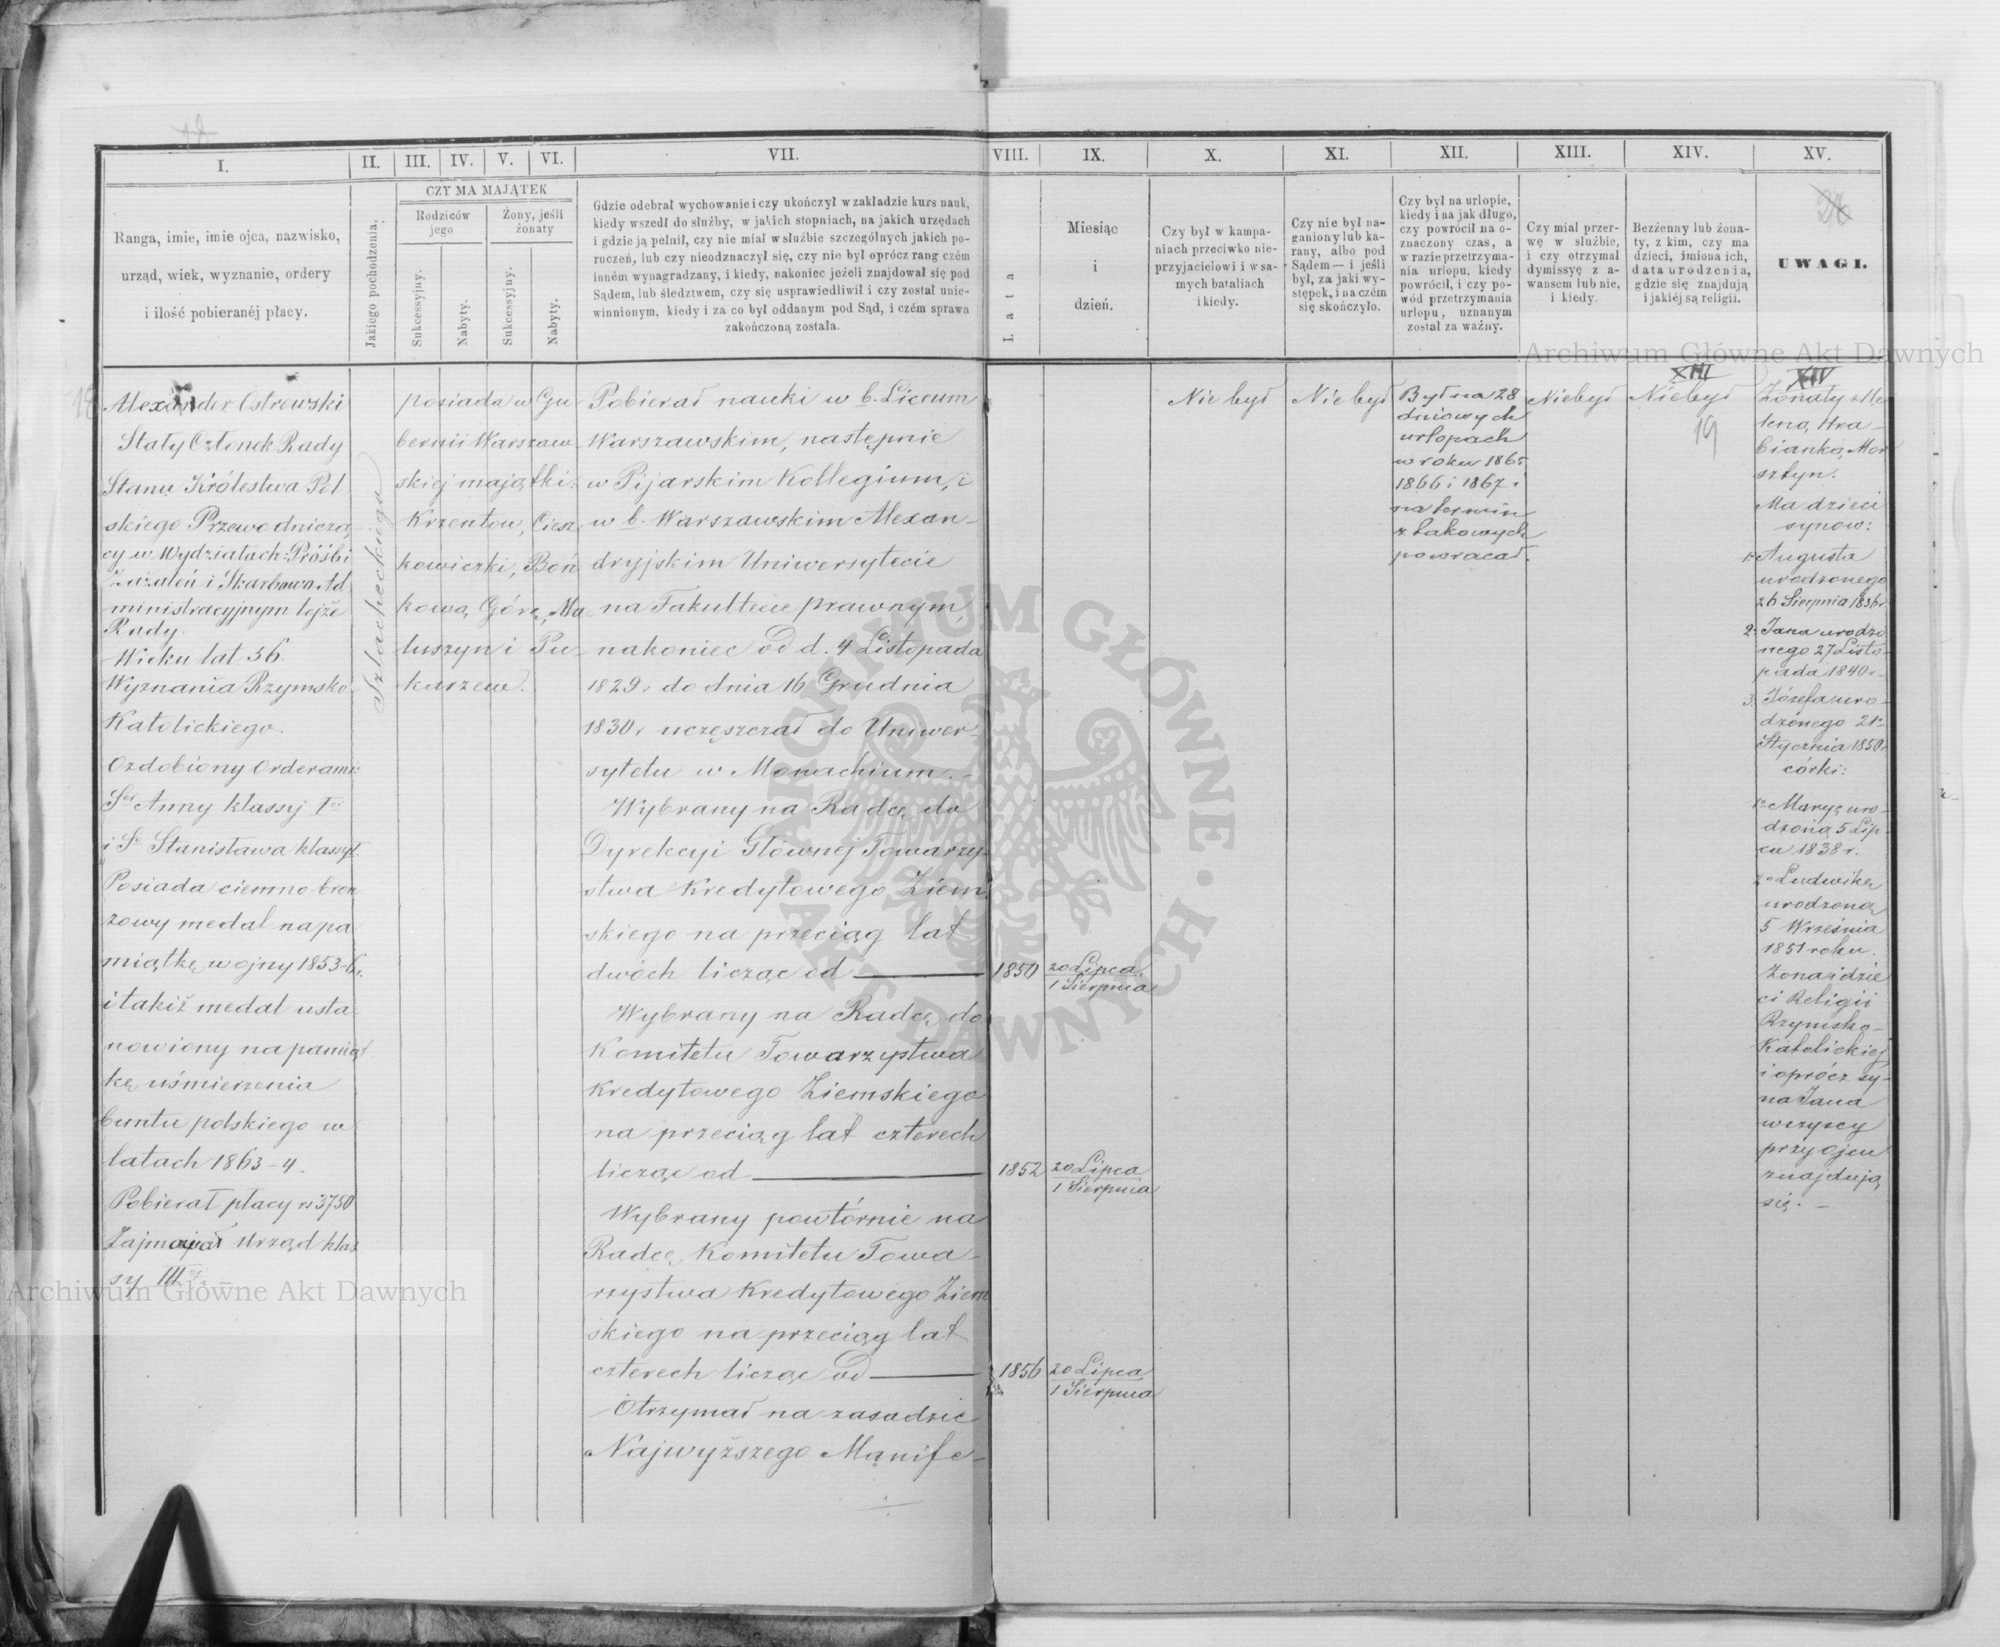 I.
II.
III.
IV.
V.
VI.
VII.
VIII.
IX.
X.
XI.
XII.
XIII.
XIV.
XV.
Ranga, imie, imie ojca, nazwisko,
urząd, wiek, wyznanie, ordery
i ilość pobieranéj płacy.
Jakiego pochodzenia.
CZY MA MAJĄTEK
Rodziców
jego
Żony, jeśli
żonaty
Sukcessyjny.
Nabyty.
Sukcessyjny.
Nabyty.
Gdzie odebrał wychowanie i czy ukończył w zakładzie kurs nauk,
kiedy wszedł do służby, w jakich stopniach, na jakich urzędach
i gdzie ją pełnił, czy nie miał w służbie szczególnych jakich po-
ruczeń, lub czy nieodznaczył się, czy nie był oprócz rang czém
inném wynagradzany, i kiedy, nakoniec jeżeli znajdował się pod
Sądem, lub śledztwem, czy się usprawiedliwił i czy został unie-
winnionym, kiedy i za co był oddanym pod Sąd, i czém sprawa
zakończoną została.
Lata
Miesiąc
i
dzień.
Czy był w kampa-
niach przeciwko nie-
przyjacielowi i w sa-
mych bataliach
i kiedy.
Czy nie był na-
ganiony lub ka-
rany, albo pod
Sądem — i jeśli
był, za jaki wy-
stępek, i na czém
się skończyło.
Czy był na urlopie,
kiedy i na jak długo,
czy powrócił na o-
znaczony czas, a
w razie przetrzyma-
nia urlopu, kiedy
powrócił, i czy po-
wód przetrzymania
urlopu, uznanym
został za ważny.
Czy miał przer-
wę w służbie,
i czy otrzymał
dymissyę z a-
wansem lub nie,
i kiedy.
Bezżenny lub żona-
ty, z kim, czy ma
dzieci, imiona ich,
data urodzenia,
gdzie się znajdują
i jakiéj są religii.
UWAGI.
18
Alexander Ostrowski
Stały Członek Rady
Stanu Królestwa Pol
skiego Przewodniczą
cy w Wydziałach: Próśb i
Zażaleń i Skarbowo Ad
ministracyjnym tejże
Rady.
Wieku lat 56.
Wyznania Rzymsko
Katolickiego.
Ozdobiony Orderami:
Śej Anny klassy I
i Śo Stanisława klassy I.
Posiada ciemno-bron
zowy medal na pa
miątkę wojny 1853-6.
i takiż medal usta
nowiony na pamiąt
kę uśmierzenia
buntu polskiego w
latach 1863-4.
Pobierał płacy rs 3750
Zajmował Urząd klas
sy III
Szlacheckiego
posiada w Gu
bernii Warszaw
skiej majątki:
Krzentow, Ciesz
kowiczki, Boń
kową Górę, Ma
luszyn i Pu
karzew.
Pobierał nauki w b. Liceum
Warszawskim, następnie
w Pijarskim Kollegium, i
w b. Warszawskim Alexan-
dryjskim Uniwersytecie
na Fakultecie prawnym,
nakoniec od d. 4 Listopada
1829 r. do dnia 16 Grudnia
1830 r. uczęszczał do Uniwer-
sytetu w Monachium.-
Wybrany na Radcę do
Dyrekcyi Głównej Towarzy-
stwa Kredytowego Ziem
skiego na przeciąg lat
dwóch licząc od
1850
20 Lipca
1 Sierpnia
Wybrany na Radcę do
Komitetu Towarzystwa
Kredytowego Ziemskiego
na przeciąg lat czterech
licząc od
1852
20 Lipca
1 Sierpnia
Wybrany powtórnie na
Radcę Komitetu Towa-
rzystwa Kredytowego Ziem
skiego na przeciąg lat
czterech licząc od
1856
20 Lipca
1 Sierpnia
Otrzymał na zasadzie
Najwyższego Manife-
Nie był
Nie był
Był na 28
dniowych
urlopach
w roku 1865
1866 i 1867 r.
na termin
z takowych
powracał.
Nie był
XIII
Nie był
19
XIV
Żonaty z He
leną Hra-
bianką Mor
sztyn.
Ma dzieci
synow:
1. Augusta
urodzonego
26 Sierpnia 1836 r.
2. Jana urodzo
nego 27 Listo-
pada 1840 r.
3. Józefa uro-
dzonego 21
Stycznia 1850 r.
córki:
1. Maryę uro-
dzoną 5 Lip-
ca 1838 r.
2. Ludwikę
urodzoną
5 Września
1851 roku.
Żona i dzie
ci Religii
Rzymsko-
Katolickiej
i oprócz sy-
na Jana
wszyscy
przy ojcu
znajdują
się. -
Archiwum Główne Akt Dawnych
Archiwum Główne Akt Dawnych
ARCHIWUM GŁÓWNE AKT DAWNYCH